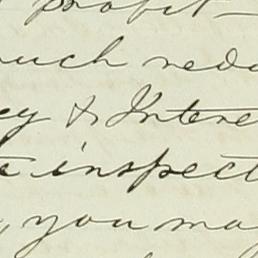 profit—
much redu
ey & Intere
e inspect
, you may